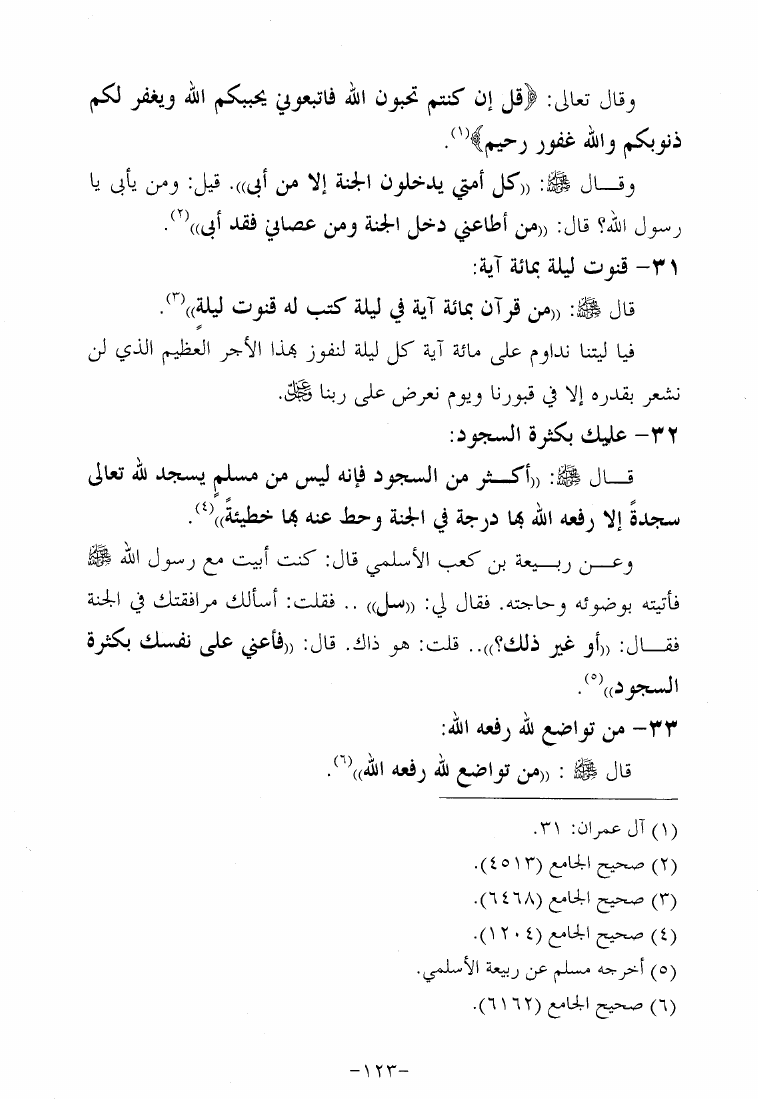 وقال تعالى: ﴿قل إن كنتم تحبون الله فاتبعوني يحببكم الله ويغفر لكم
ذنوبكم والله غفور رحيم﴾(١).
وقـــال ﷺ: ((كل أمتي يدخلون الجنة إلا من أبى)). قيل: ومن يأبى يا
رسول الله؟ قال: ((من أطاعني دخل الجنة ومن عصاني فقد أبى))(٢).
٣١- قنوت ليلة بمائة آية:
قال ﷺ: ((من قرآن بمائة آية في ليلة كتب له قنوت ليلةٍ))(٣).
فيا ليتنا نداوم على مائة آية كل ليلة لنفوز بهذا الأجر العظيم الذي لن
نشعر بقدره إلا في قبورنا ويوم نعرض على ربنا ﷻ.
٣٢- عليك بكثرة السجود:
قـــال ﷺ: ((أكـــثر من السجود فإنه ليس من مسلمٍ يسجد لله تعالى
سجدةً إلا رفعه الله بها درجة في الجنة وحط عنه بها خطيئةً))(٤).
وعـــن ربـــيعة بن كعب الأسلمي قال: كنت أبيت مع رسول الله ﷺ
فأتيته بوضوئه وحاجته. فقال لي: ((سل)) .. فقلت: أسألك مرافقتك في الجنة
فقـــال: ((أو غير ذلك؟)).. قلت: هو ذاك. قال: ((فأعني على نفسك بكثرة
السجود))(٥).
٣٣- من تواضع لله رفعه الله:
قال ﷺ : ((من تواضع لله رفعه الله))(٦).
(١) آل عمران: ٣١.
(٢) صحيح الجامع (٤٥١٣).
(٣) صحيح الجامع (٦٤٦٨).
(٤) صحيح الجامع (١٢٠٤).
(٥) أخرجه مسلم عن ربيعة الأسلمي.
(٦) صحيح الجامع (٦١٦٢).
-١٢٣-